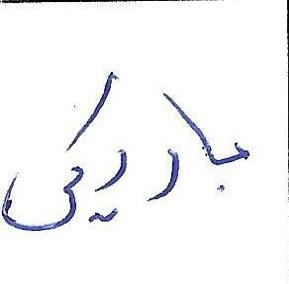 باریکی